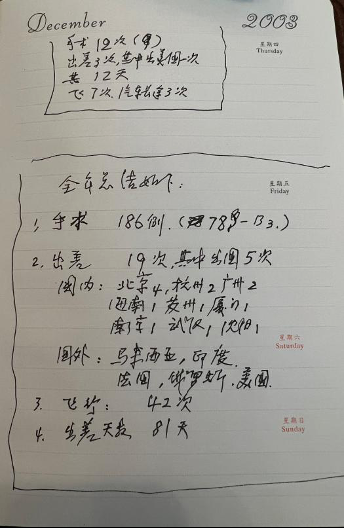 December 2003
星期四
Thursday
手术 12次
出差3次,其中出美国一次
共 12天
飞7次.汽车长途3次
星期五
Friday
全年总结如下:
1, 手术 186例. 78 - 13.)
2. 出差 19次,其中出国5次
国内: 北京4,杭州2 广州2
海南1 苏州1 厦门1
南京1 武汉1 沈阳1
星期六
Saturday
国外: 马来西亚, 印度
法国, 俄罗斯. 美国.
3. 飞行: 42次
星期日
Sunday
4. 出差天数 81天